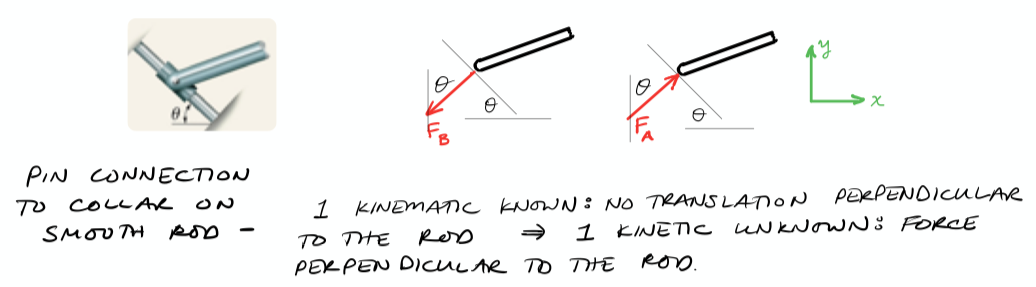 θ
θ
θ
F_B
θ
θ
F_A
y
x
PIN CONNECTION
TO COLLAR ON
SMOOTH ROD -
1 KINEMATIC KNOWN: NO TRANSLATION PERPENDICULAR
TO THE ROD ⇒ 1 KINETIC UNKNOWN: FORCE
PERPENDICULAR TO THE ROD.